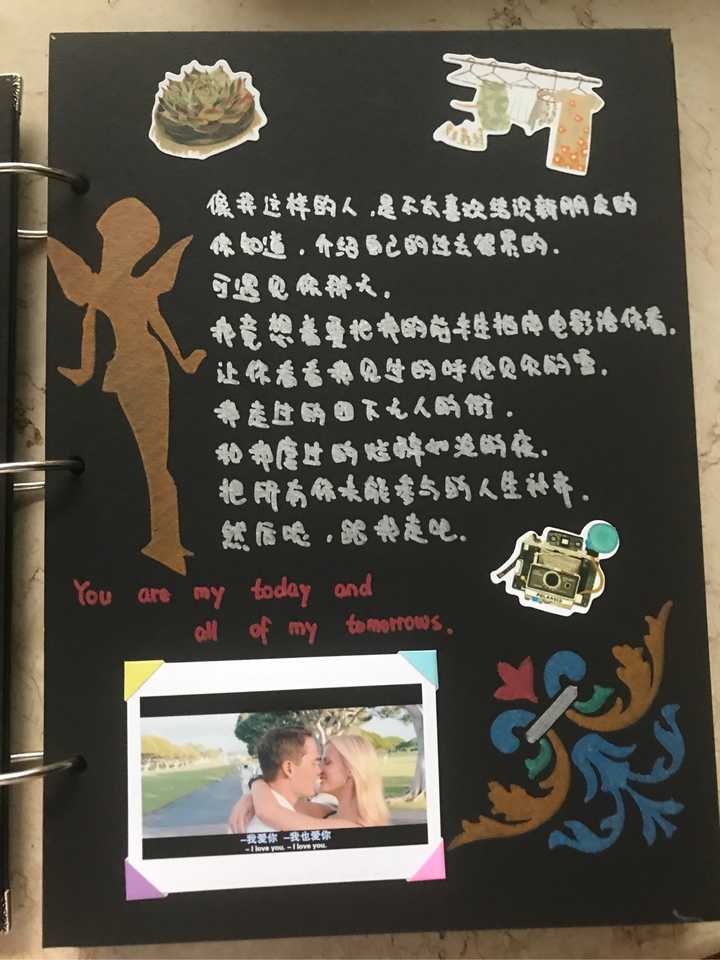 像我这样的人，是不太喜欢结识新朋友的
你知道，介绍自己的过去很累的.
可遇见你那天，
我竟想着要把我的前半生拍成电影给你看，
让你看看我见过的呼伦贝尔的雪，
我走过的四下无人的街，
和我度过的烂醉如泥的夜.
把所有你未能参与的人生补齐，
然后呢，跟我走吧.
You are my today and
all of my tomorrows.
POLAROID
–我爱你 –我也爱你
– I love you. – I love you.